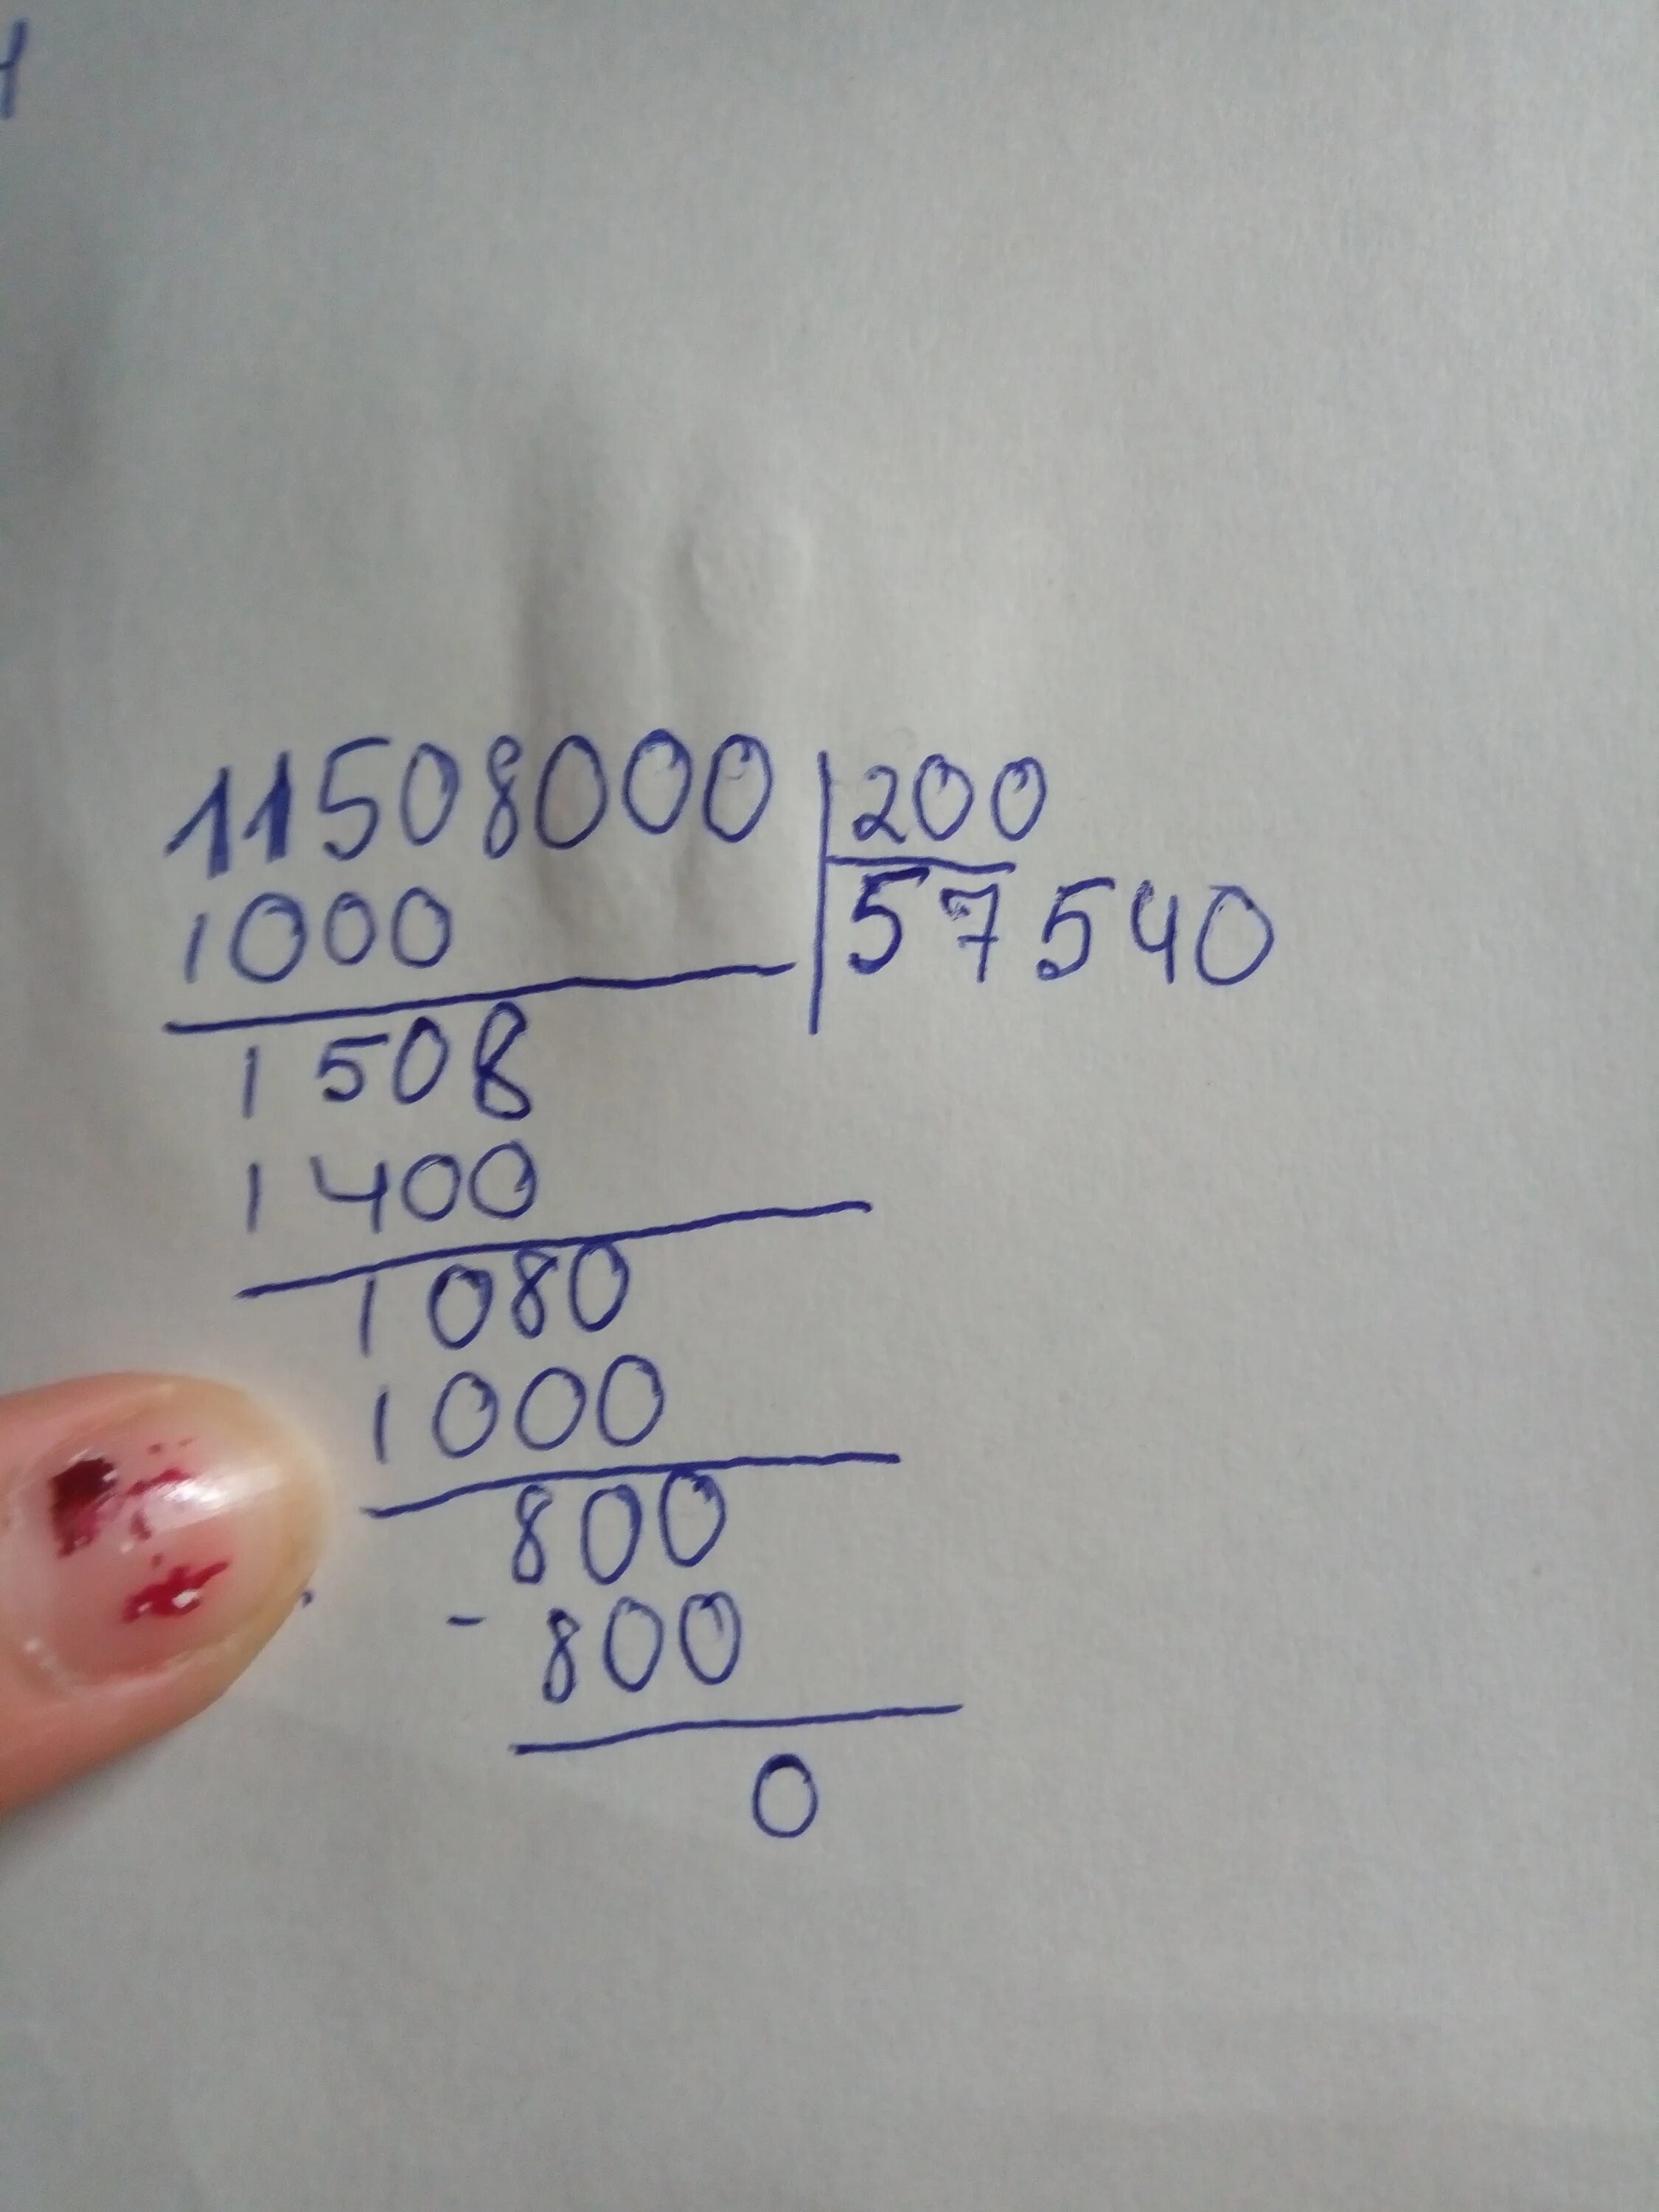 11508000 200
1000 57540
1508
1400
1080
1000
800
- 800
0